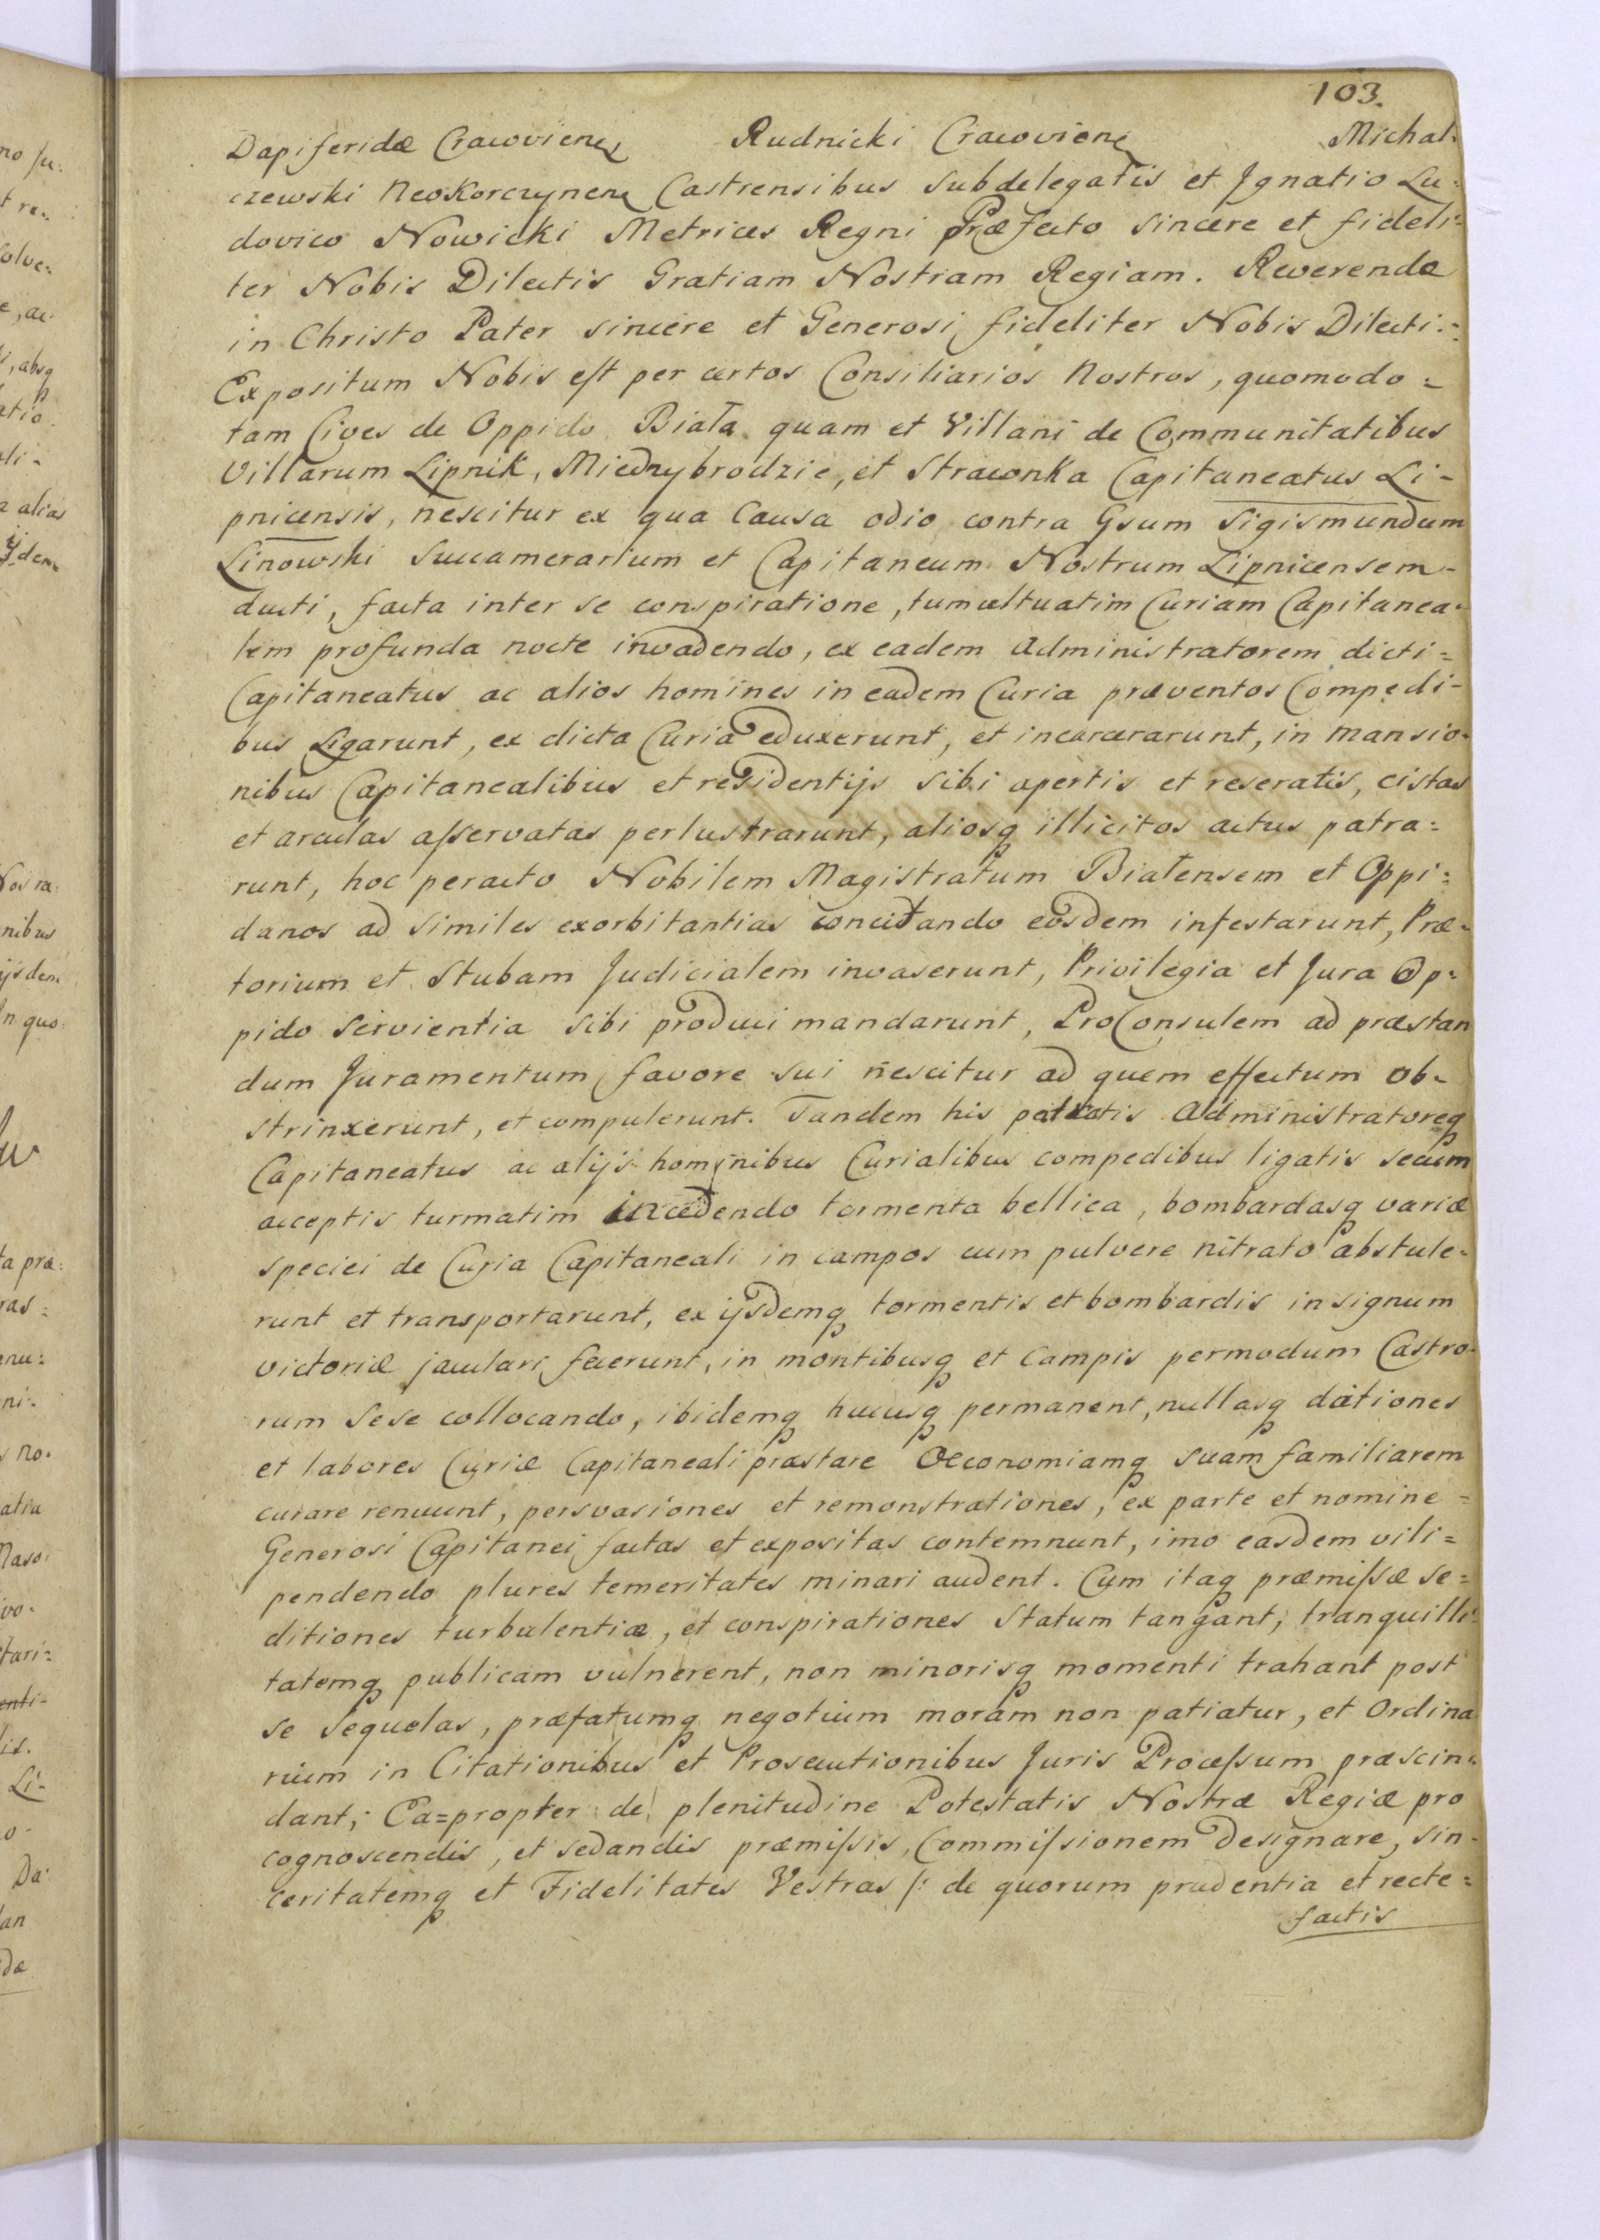 103.
Dapiferidæ Cracovien Rudnicki Cracovien Michal=
czewski Neokorczynen Castrensibus subdelegatis et Ignatio Lu=
dovico Nowicki Metrices Regni Præfecto sincere et fideli=
ter Nobis Dilectis Gratiam Nostram Regiam. Reverende
in Christo Pater sincere et Generosi fideliter Nobis Dilecti:=
Expositum Nobis est per certos Consiliarios Nostros, quomodo=
tam Cives de Oppido Biała quam et Villani de Communitatibus
Villarum Lipnik, Miedzybrodzie, et Straconka Capitaneatus Li=
pnicensis, nescitur ex qua Causa odio contra Gsum Sigismundum
Linowski Succamerarium et Capitaneum Nostrum Lipnicensem=
ducti, facta inter se conspiratione, tumultuatim Curiam Capitanea=
lem profunda nocte invadendo, ex eadem Administratorem dicti=
Capitaneatus ac alios homines in eadem Curia præventos Compedi=
bus Ligarunt, ex dicta Curia eduxerunt, et incarcerarunt, in mansio=
nibus Capitanealibus et residentijs sibi apertis et reseratis, cistas
et arculas asservatas perlustrarunt, aliosq illicitos actus patra=
runt, hoc peracto Nobilem Magistratum Białensem et Oppi=
danos ad similes exorbitantias concitando eosdem infestarunt, Præ=
torium et Stubam Judicialem invaserunt, Privilegia et Jura Op=
pido servientia sibi produci mandarunt, ProConsulem ad præstan
dum Juramentum favore sui nescitur ad quem effectum ob=
strinxerunt, et compulerunt. Tandem his patratis Administratoreq
Capitaneatus ac alijs hominibus Curialibus compedibus ligatis secum
acceptis turmatim incedendo tormenta bellica, bombardasq variæ
speciei de Curia Capitaneali in campos cum pulvere nitrato abstule=
runt et transportarunt, ex ijsdemq tormentis et bombardis in signum
victoriæ jaculari fecerunt, in montibusq et Campis permodum Castro=
rum sese collocando, ibidemq hucusq permanent, nullasq dationes
et labores Curiæ Capitaneali præstare Oeconomiamq suam familiarem
curare renuunt, persvasiones et remonstrationes, ex parte et nomine=
Generosi Capitanei factas et expositas contemnunt, imo easdem vili=
pendendo plures temeritates minari audent. Cum itaq præmissæ se=
ditiones turbulentiæ, et conspirationes Statum tangant, tranquilli=
tatemq publicam vulnerent, non minorisq momenti trahant post
se sequelas, præfatumq negotium moram non patiatur, et Ordina
rium in Citationibus et Prosecutionibus Juris Processum præscin=
dant; Ea=propter de plenitudine Potestatis Nostræ Regiæ pro
cognoscendis, et sedandis præmissis, Commissionem designare, sin=
ceritatemq et Fidelitates Vestras /: de quorum prudentia et recte=
factis